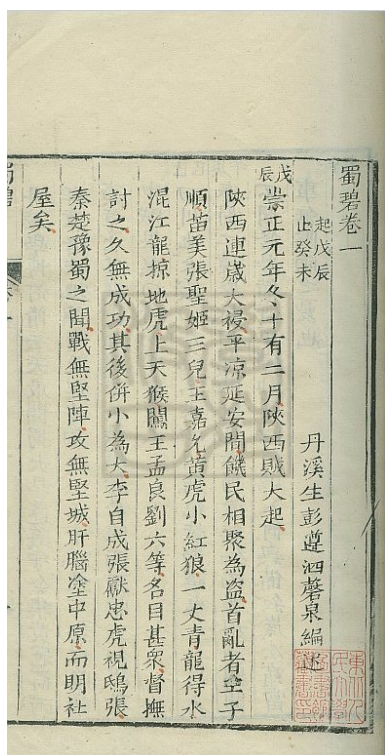 蜀碧卷一
起戊辰
止癸未
丹溪生彭遵泗磬泉編述
戊辰
崇正元年冬十有二月陝西賊大起
陝西連歲大祲平涼延安間饑民相聚為盜首亂者王子
順苗美張聖姬三兒王嘉允黃虎小紅狼一丈青龍得水
混江龍掠地虎上天猴闖王孟良劉六等名目甚衆督撫
討之久無成功其後併小為大李自成張獻忠虎視鴟張
秦楚豫蜀之間戰無堅陣攻無堅城肝腦塗中原而明社
屋矣
蜀碧